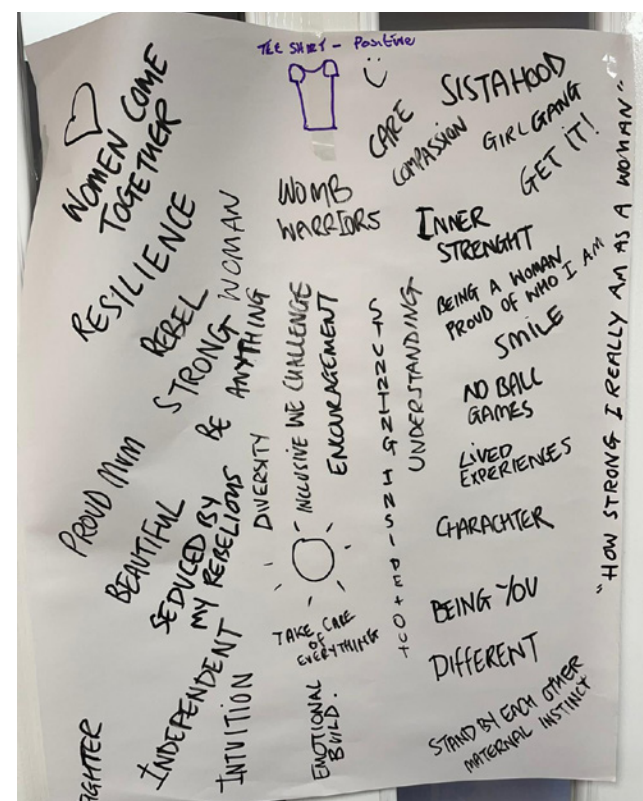 TEE SHIRT - Positive
WOMEN COME
TOGETHER
RESILIENCE
REBEL
STRONG WOMAN
BE ANYTHING
PROUD MUM
BEAUTIFUL
SEDUCED BY
MY REBELIOUS
INDEPENDENT
INTUITION
WOMB
WARRIORS
DIVERSITY
INCLUSIVE WE CHALLENGE
ENCOURAGEMENT
TAKE CARE
OF
EVERYTHING
EMOTIONAL
BUILD.
STUNNING INSIDE + OUT
UNDERSTANDING
CARE
COMPASSION
SISTAHOOD
GIRL GANG
GET IT!
INNER
STRENGHT
BEING A WOMAN
PROUD OF WHO I AM
SMILE
NO BALL
GAMES
LIVED
EXPERIENCES
CHARACHTER
BEING YOU
DIFFERENT
STAND BY EACH OTHER
MATERNAL INSTINCT
"HOW STRONG I REALLY AM AS A WOMAN"